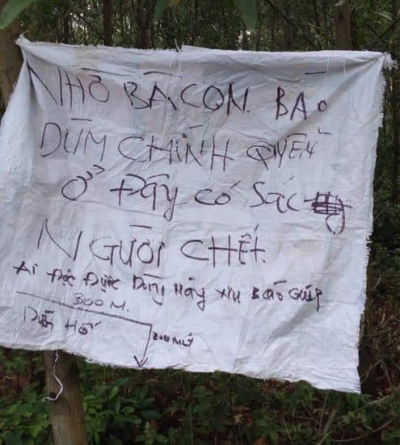 NHỜ BÀ CON BÁO
DÙM CHÍNH QUYỀN
Ở ĐÂY CÓ SÁC
NGƯỜI CHẾT.
Ai Đọc Được Dòng Này xin Báo Giúp
300 M.
Dưới Hố
200 M